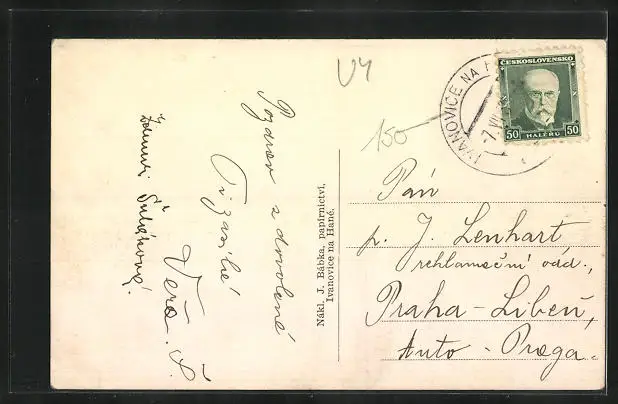 V4
150
IVANOVICE NA H
-7.VII
ČESKOSLOVENSKO
50 HALÉŘŮ 50
Pozdrav z dovolené
Vám zasílá
Věra. Š.
Nákl. J. Bábka, papírnictví,
Ivanovice na Hané.
Pán
p. J. Lenhart
reklamační odd.,
Praha-Libeň,
Auto-Praga.